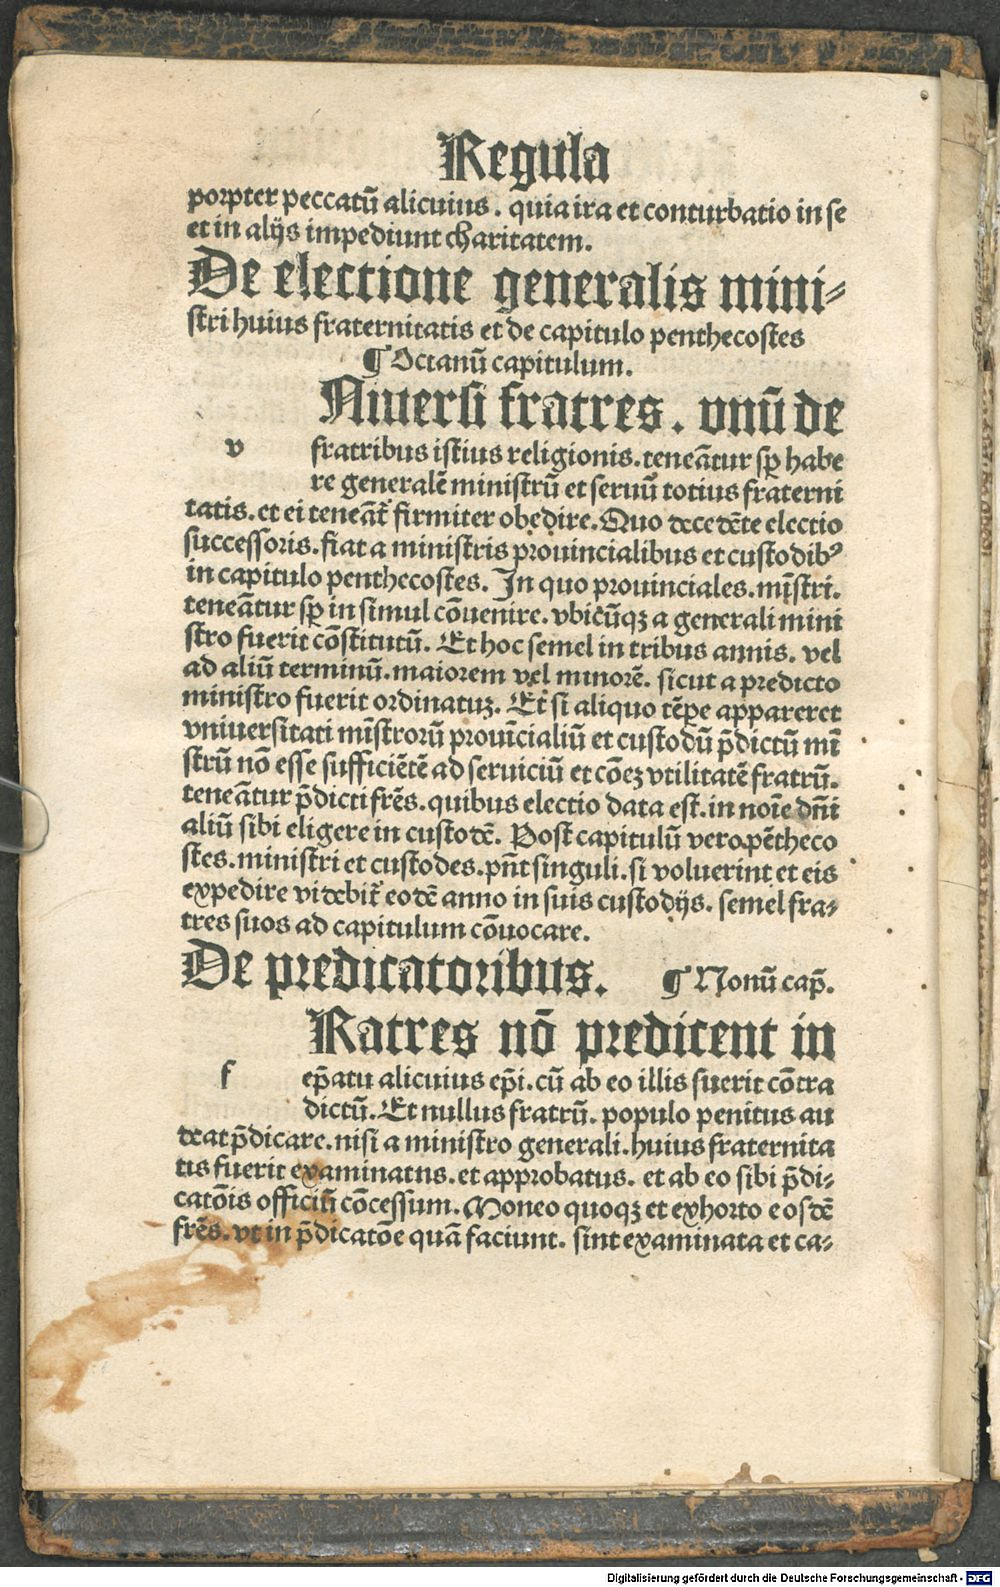 Regula
porpter peccatū alicuius. quia ira et conturbatio in se
et in alijs impediunt charitatem.
De electione generalis mini⸗
stri huius fraternitatis et de capitulo penthecostes
¶ Octanū capitulum.
Niuersi fratres. vnū de
v fratribus istius religionis. teneātur sꝑ habe
re generalē ministrū et seruū totius fraterni
tatis. et ei teneāt᷑ firmiter obedire. Quo decedēte electio
successoris. fiat a ministris prouincialibus et custodibꝰ
in capitulo penthecostes. In quo prouinciales. mīstri.
teneātur sꝑ in simul cōuenire. vbicūqꝫ a generali mini
stro fuerit cōstitutū. Et hoc semel in tribus annis. vel
ad aliū terminū. maiorem vel minorē. sicut a predicto
ministro fuerit ordinatuꝫ. Et si aliquo tēpe appareret
vniuersitati mīstrorū prouīcialiū et custodū p̄dictū mī
strū nō esse sufficiētē ad seruiciū et cōeꝫ vtilitatē fratrū.
teneātur p̄dicti frēs. quibus electio data est. in noīe dn̄i
aliū sibi eligere in custodē. Post capitulū vero pētheco
stes. ministri et custodes. pn̄t singuli. si voluerint et eis
expedire videbit᷑ eodē anno in suis custodijs. semel fra⸗
tres suos ad capitulum cōuocare.
De predicatoribus. ¶ Nonū cap̄.
Ratres nō predicent in
f ep̄atu alicuius ep̄i. cū ab eo illis suerit cōtra
dictū. Et nullus fratrū. populo penitus au
deat p̄dicare. nisi a ministro generali. huius fraternita
tis fuerit examinatns. et approbatus. et ab eo sibi p̄di⸗
catōis officiū cōcessum. Moneo quoqꝫ et exhorto eosdē
frēs. vt in p̄dicatōe quā faciunt. sint examinata et ca⸗
Digitalisierung gefördert durch die Deutsche Forschungsgemeinschaft - DFG